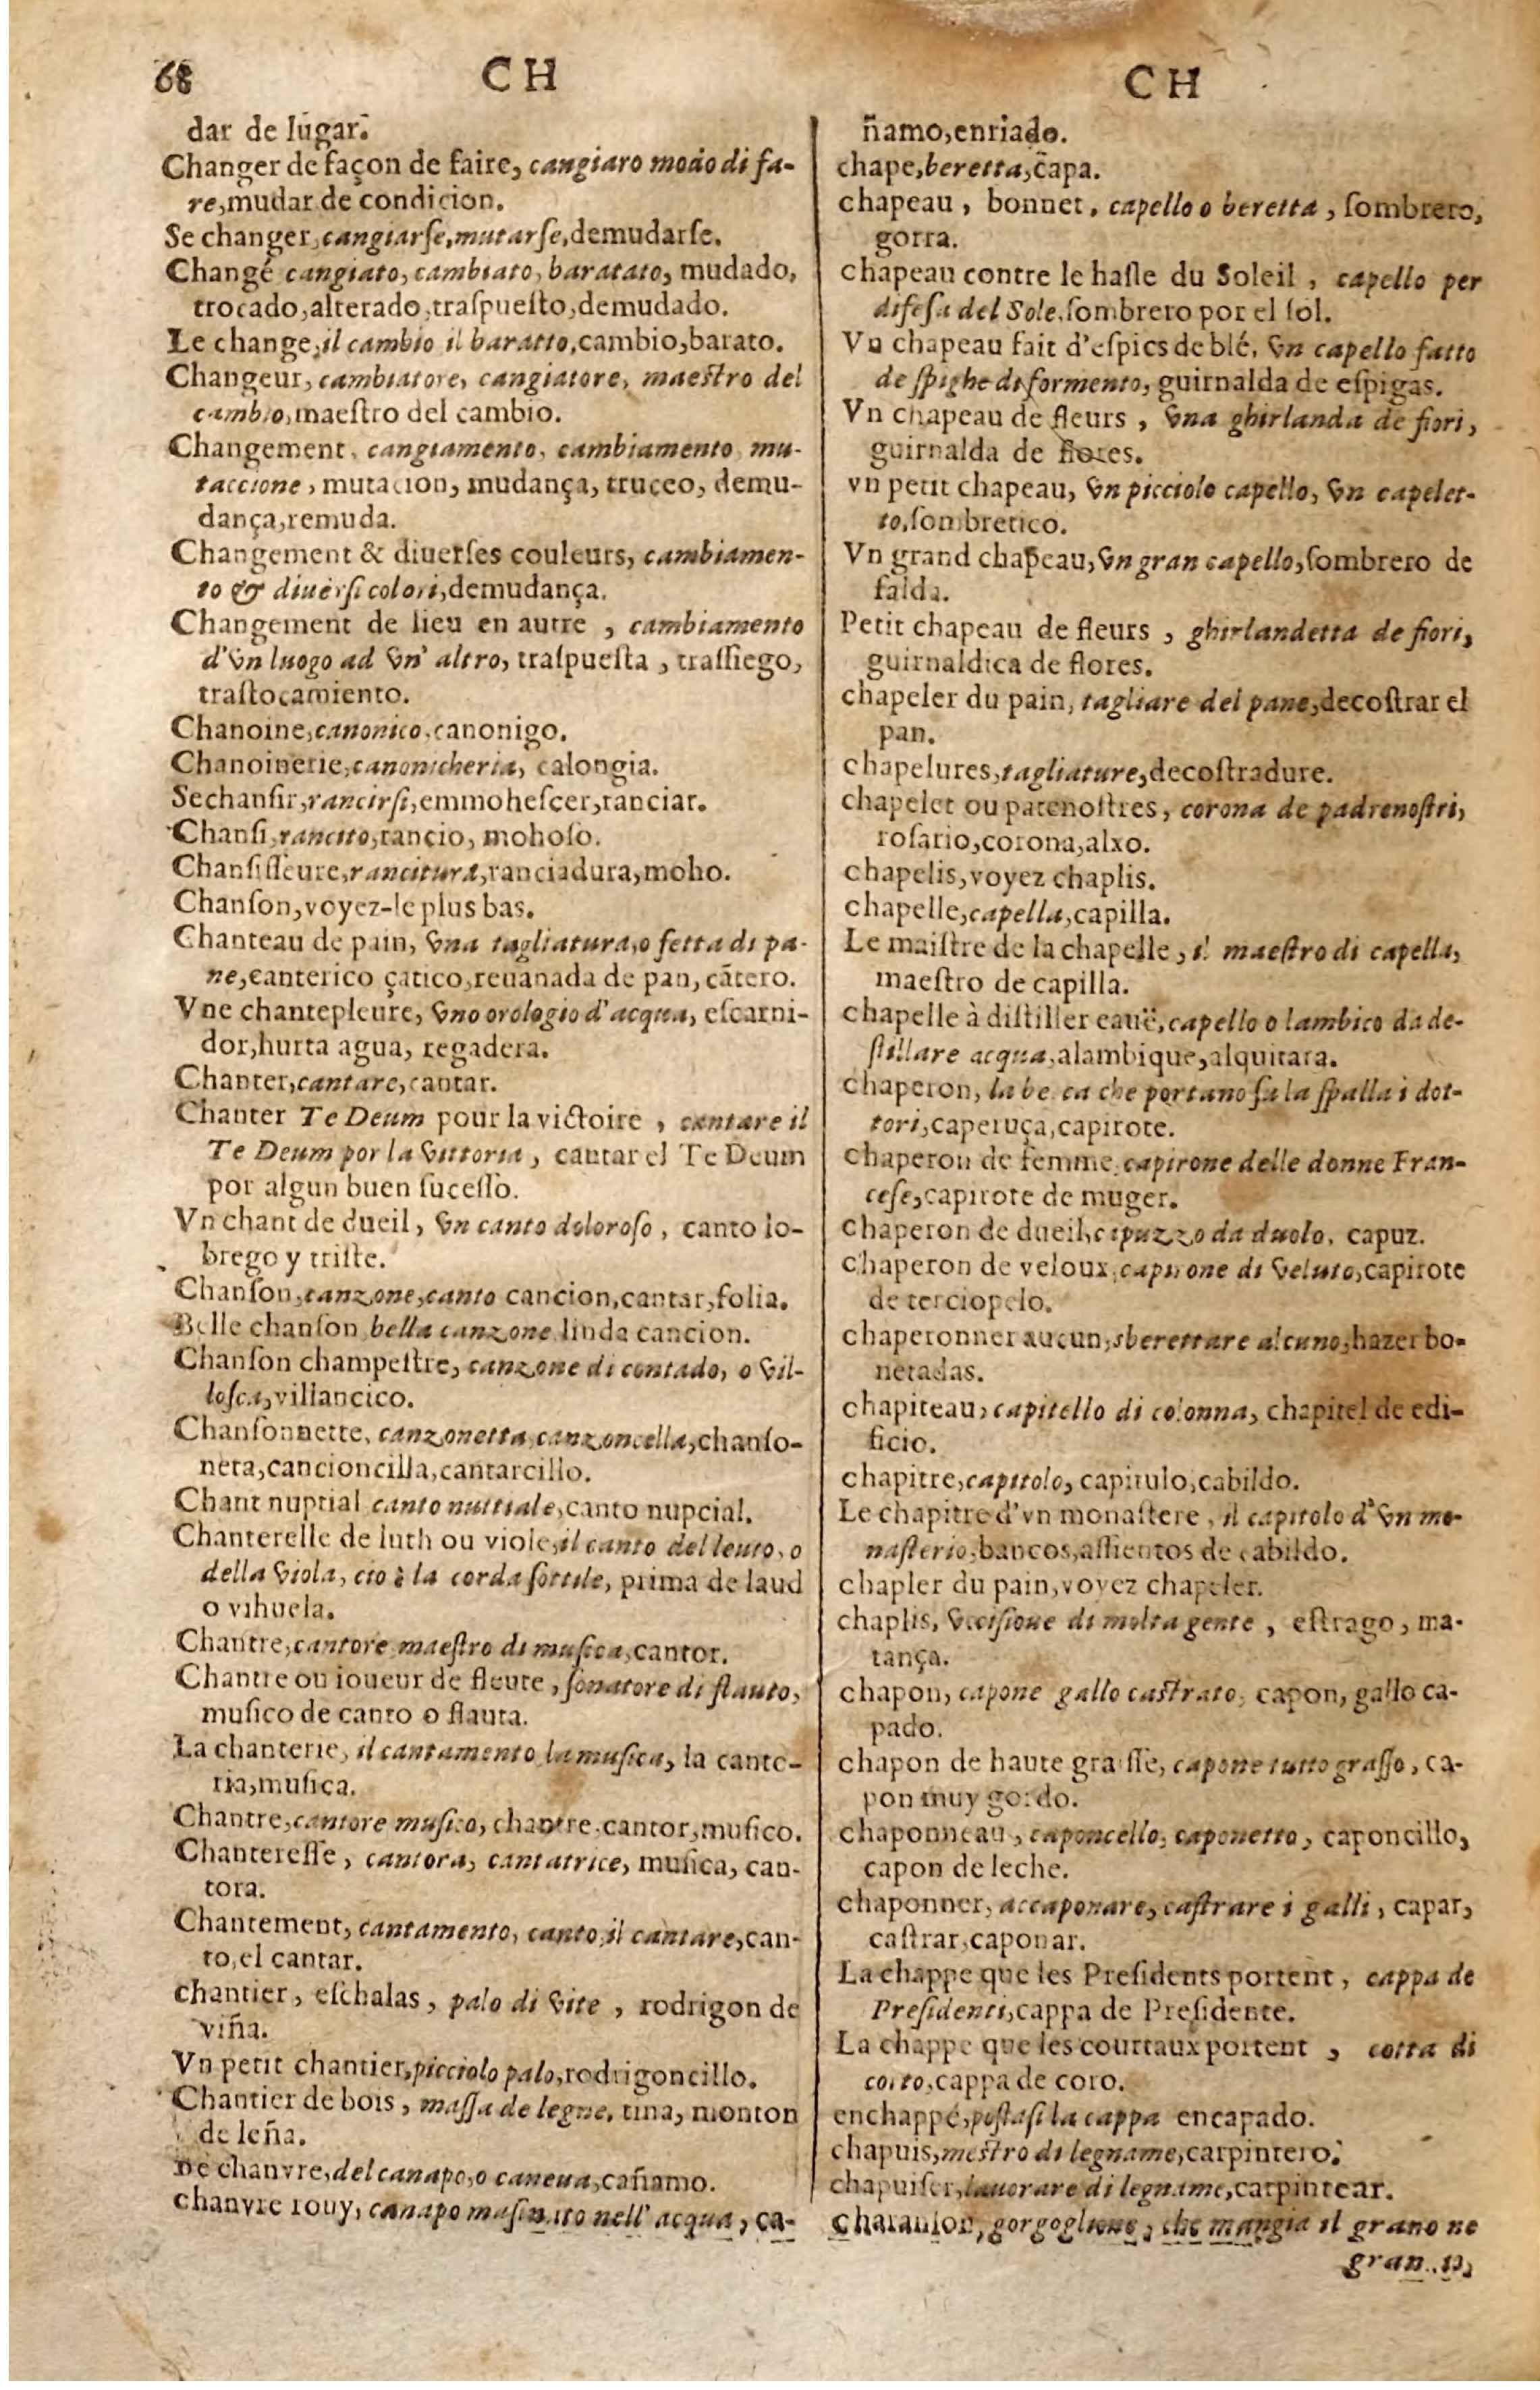 68
CH
dar de lugar.
Changer de façon de faire, cangiaro modo di fa-
re,mudar de condicion.
Se changer,cangiarſe,mutarſe,demudarſe.
Changé cangiato, cambiato, baratato, mudado,
trocado,alterado,traſpueſto,demudado.
Le change,il cambio il baratto,cambio,barato.
Changeur, cambiatore, cangiatore, maeſtro del
cambio,maeſtro del cambio.
Changement, cangiamento, cambiamento, mu-
taccione, mutacion, mudança, trueco, demu-
dança,remuda.
Changement & diuerſes couleurs, cambiamen-
to & diuerſi colori,demudança.
Changement de lieu en autre , cambiamento
d'vn luogo ad vn' altro, traſpueſta , traſſiego,
traſtocamiento.
Chanoine,canonico,canonigo.
Chanoinerie,canonicheria, calongia.
Sechanſir,rancirſi,emmoheſcer,ranciar.
Chanſi,rancito,rancio, mohoſo.
Chanſiſſeure,rancitura,ranciadura,moho.
Chanſon,voyez-le plus bas.
Chanteau de pain, vna tagliatura,o fetta di pa-
ne,canterico çatico,reuanada de pan, cãtero.
Vne chantepleure, vno orologio d'acqua, eſcarni-
dor,hurta agua, regadera.
Chanter,cantare,cantar.
Chanter Te Deum pour la victoire , cantare il
Te Deum por la vittoria , cantar el Te Deum
por algun buen ſuceſſo.
Vn chant de dueil, vn canto doloroſo , canto lo-
brego y triſte.
Chanſon,canzone,canto cancion,cantar,folia.
Belle chanſon bella canzone linda cancion.
Chanſon champeſtre, canzone di contado, o vil-
loſca,villancico.
Chanſonnette, canzonetta,canzoncella,chanſo-
neta,cancioncilla,cantarcillo.
Chant nuptial canto nuttiale,canto nupcial.
Chanterelle de luth ou viole,il canto del leuto, o
della viola, cio è la corda ſottile, prima de laud
o vihuela.
Chantre,cantore maeſtro di muſica,cantor.
Chantre ou ioueur de fleute , ſonatore di flauto,
muſico de canto o flauta.
La chanterie, il cantamento la muſica, la cante-
ria,muſica.
Chantre,cantore muſico, chantre,cantor,muſico.
Chantereſſe , cantora, cantatrice, muſica, can-
tora.
Chantement, cantamento, canto,il cantare,can-
to,el cantar.
chantier, eſchalas, palo di vite , rodrigon de
viña.
Vn petit chantier,picciolo palo,rodrigoncillo.
Chantier de bois , maſſa de legne, tina, monton
de leña.
De chanvre,del canapo,o caneua,cañamo.
chanvre rouy, canapo nell' acqua, ca-
CH
ñamo,enriado.
chape,beretta,capa.
chapeau , bonnet, capello o beretta , ſombrero,
gorra.
chapeau contre le haſle du Soleil , capello per
difeſa del Sole,ſombrero por el ſol.
Vn chapeau fait d'eſpics de blé, vn capello fatto
de ſpighe di formento, guirnalda de eſpigas.
Vn chapeau de fleurs , vna ghirlanda de fiori,
guirnalda de flores.
vn petit chapeau, vn picciolo capello, vn capelet-
to,ſombretico.
Vn grand chapeau,vn gran capello,ſombrero de
falda.
Petit chapeau de fleurs , ghirlandetta de fiori,
guirnaldica de flores.
chapeler du pain, tagliare del pane,decoſtrar el
pan.
chapelures,tagliature,decoſtradure.
chapelet ou patenoſtres, corona de padrenoſtri,
roſario,corona,alxo.
chapelis,voyez chaplis.
chapelle,capella,capilla.
Le maiſtre de la chapelle , il maeſtro di capella,
maeſtro de capilla.
chapelle à diſtiller eauë,capello o lambico da de-
ſtillare acqua,alambique,alquitara.
chaperon, la beca che portano ſu la ſpalla i dot-
tori,caperuça,capirote.
chaperon de femme,capirone delle donne Fran-
ceſe,capirote de muger.
chaperon de dueil,capuzzo da duolo, capuz.
chaperon de veloux,capirone di veluto,capirote
de terciopelo.
chaperonner aucun,sberettare alcuno,hazer bo-
netadas.
chapiteau, capitello di colonna, chapitel de edi-
ficio.
chapitre,capitolo, capitulo,cabildo.
Le chapitre d'vn monaſtere , il capitolo d'vn mo-
naſterio,bancos,aſſientos de cabildo.
chapler du pain,voyez chapeler.
chaplis, vcciſione di molta gente , eſtrago, ma-
tança.
chapon, capone gallo caſtrato, capon, gallo ca-
pado.
chapon de haute graiſſe, capone tutto graſſo, ca-
pon muy gordo.
chaponneau , caponcello, caponetto, caponcillo,
capon de leche.
chaponner, accaponare, caſtrare i galli, capar,
caſtrar,caponar.
La chappe que les Preſidents portent, cappa de
Preſidenti,cappa de Preſidente.
La chappe que les courtaux portent , cotta di
corto,cappa de coro.
enchappé,poſtaſi la cappa encapado.
chapuis,meſtro di legname,carpintero.
chapuiſer,lauorare di legname,carpintear.
charanſon, gorgoglione, che mangia il grano ne